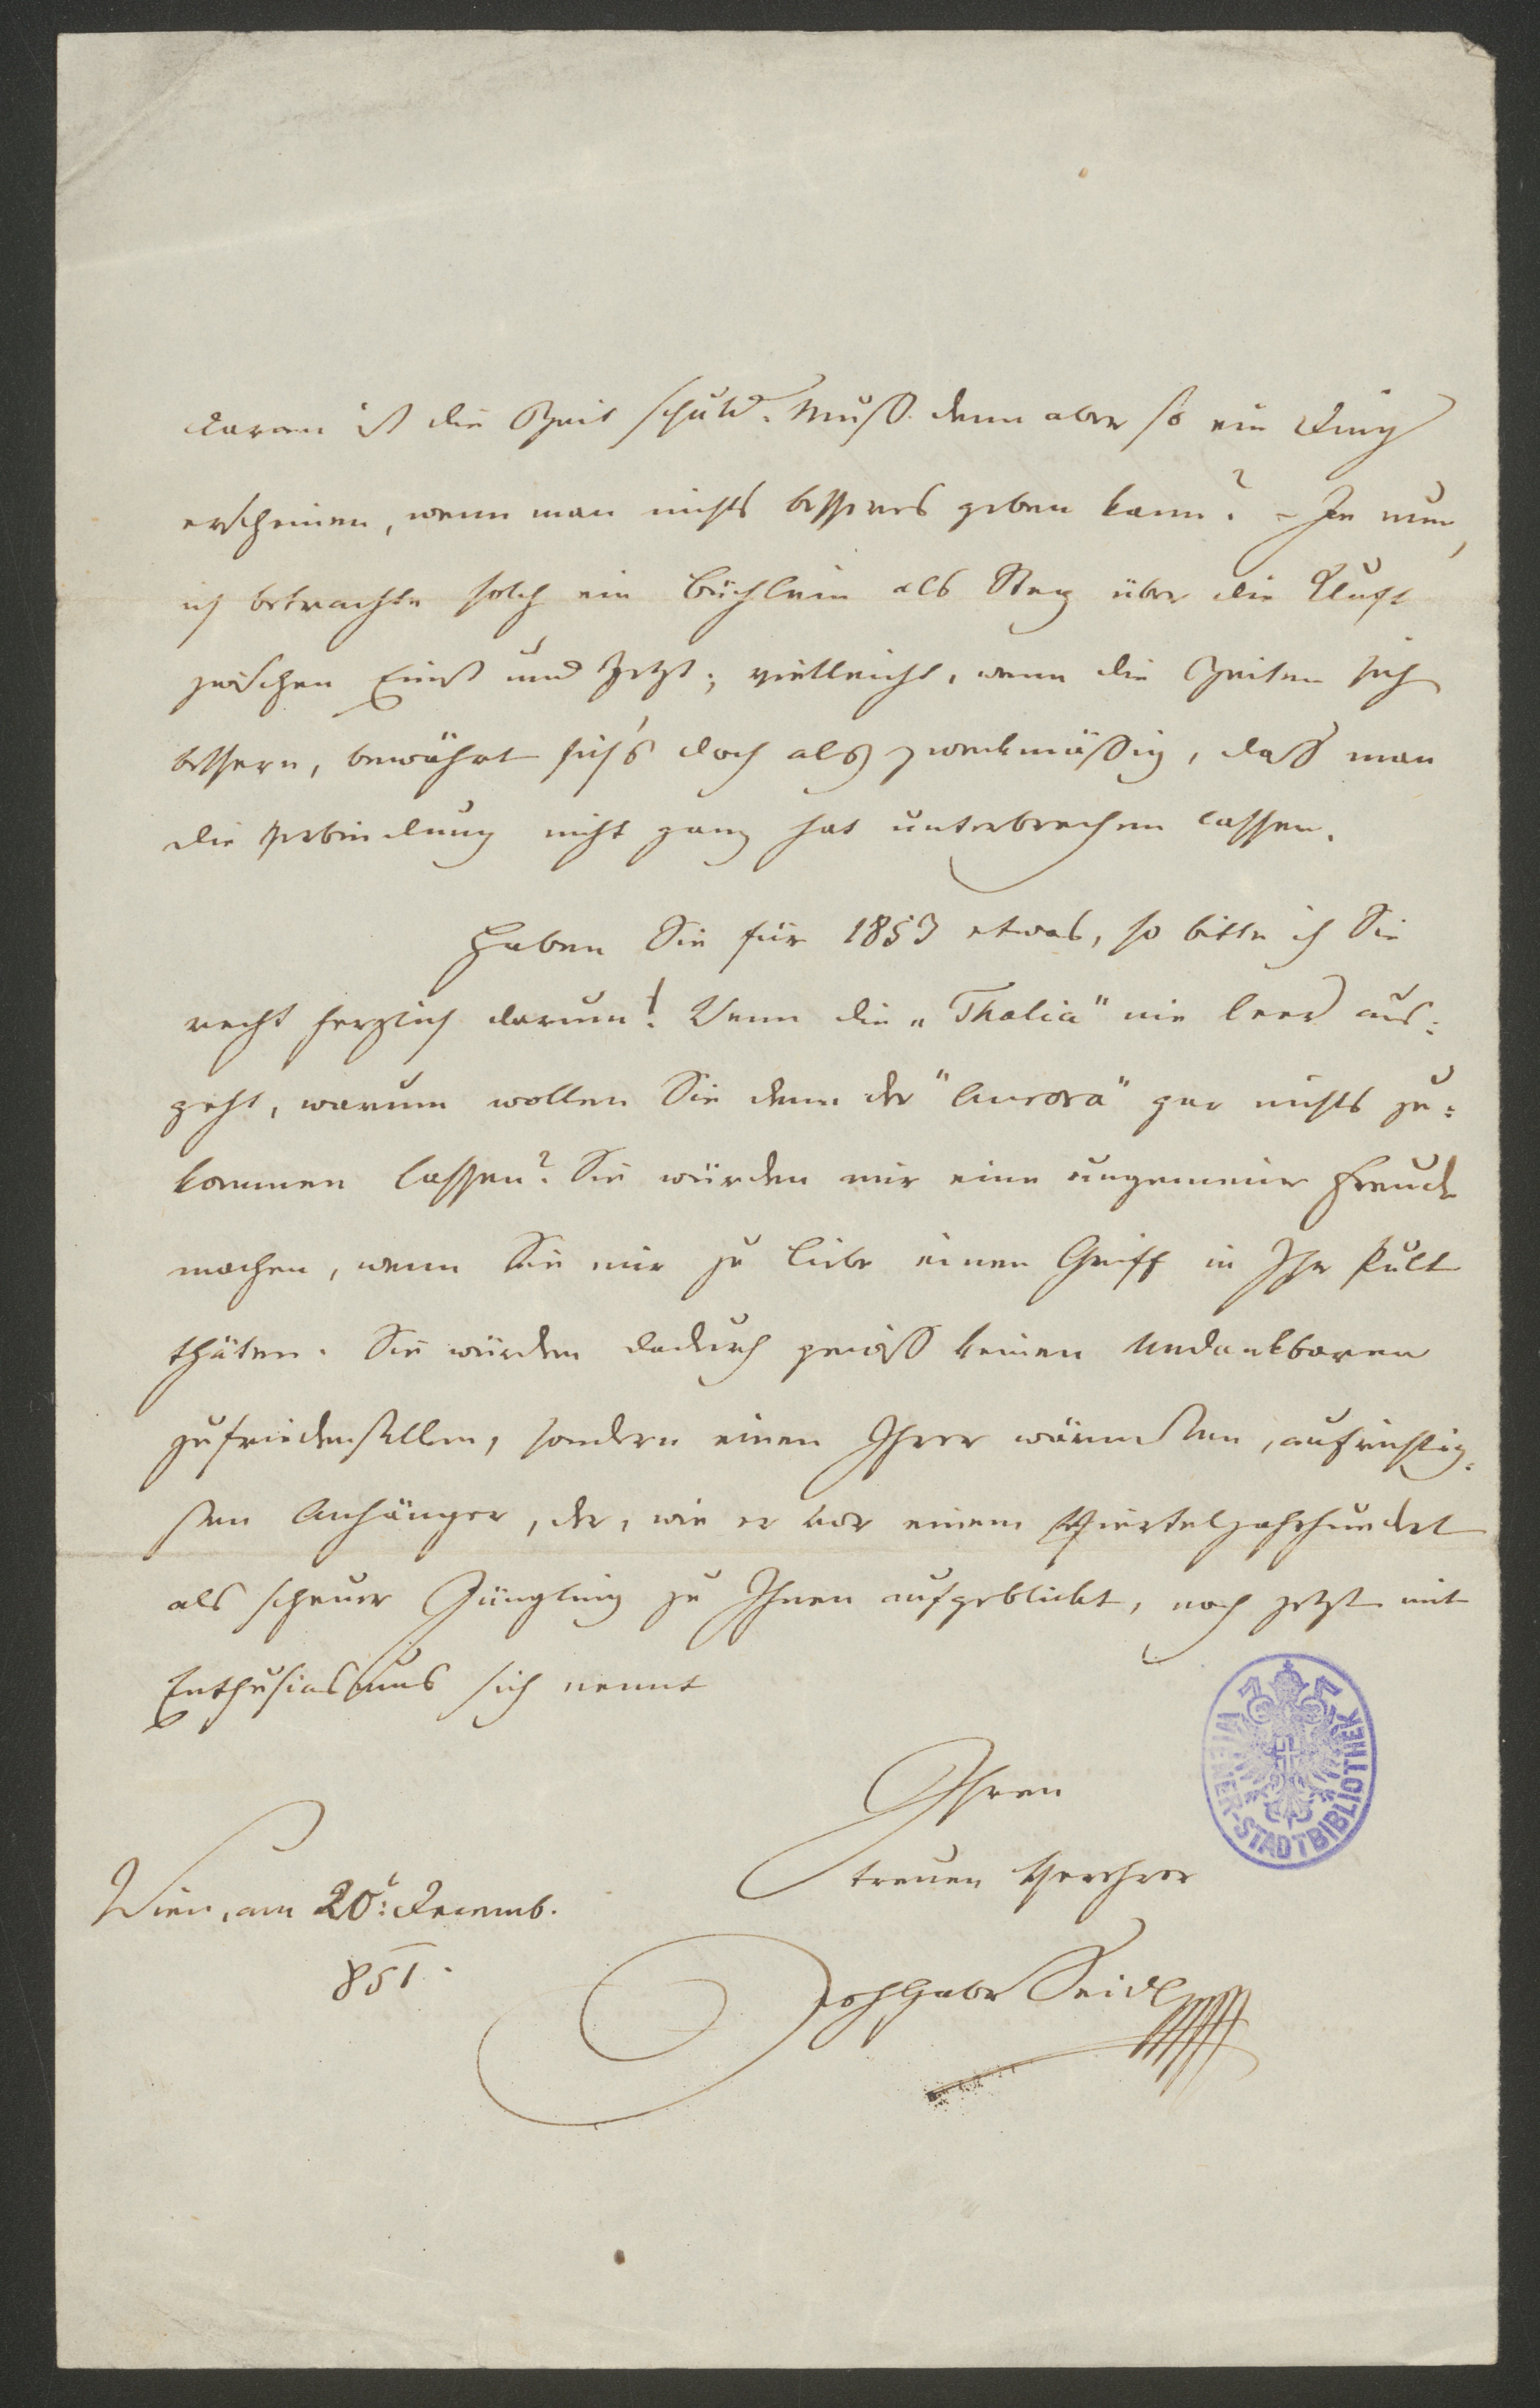 daran ist die Zeit schuld. Muß denn aber so ein Ding
erscheinen, wenn man nichts besseres geben kann? – Je nun,
ich betrachte solch ein Büchlein als Steg über die Kluft
zwischen Einst und Jetzt; vielleicht, wenn die Zeiten sich
bessern, bewährt sich's doch als zweckmäßig, daß man
die Verbindung nicht ganz hat unterbrechen lassen.
Haben Sie für 1853 etwas, so bitte ich Sie
recht herzlich darum! Wenn die „Thalia" nie leer aus=
geht, warum wollen Sie denn der "Aurora" gar nichts zu=
kommen lassen? Sie würden mir eine ungemeine Freude
machen, wenn Sie mir zu liebe einen Griff in Ihr Pult
thäten. Sie würden dadurch gewiß keinen Undankbaren
zufriedenstellen, sondern einen Ihrer wärmsten, aufrichtig=
sten Anhänger, der, wie er vor einem Vierteljahrhundert
als scheuer Jüngling zu Ihnen aufgeblickt, noch jetzt mit
Enthusiasmus sich nennt
Ihren
treuen Verehrer
Wien, am 20t: Decemb.
851.
Joh Gabr Seidl
WIENER-STADTBIBLIOTHEK